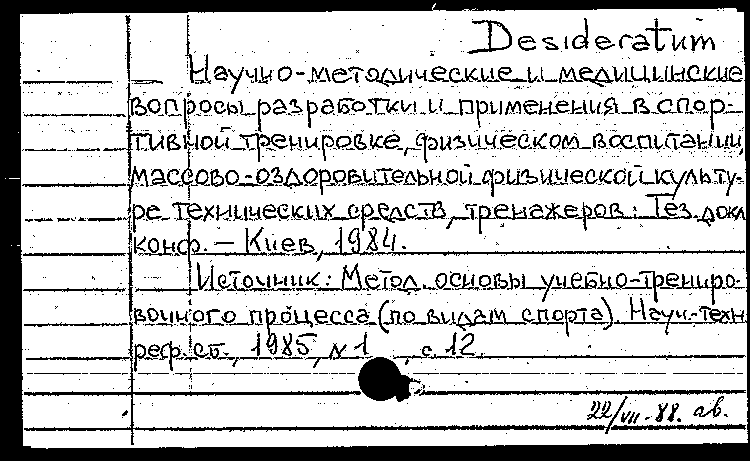 Desideratum
Научно-методические и медицинские
вопросы разработки и применения в спор-
тивной тренировке, физическом воспитании,
массово-оздоровительной физической культу-
ре технических средств, тренажеров: Тез. докл
конф. – Киев, 1984.
Источник: Метод. основы учебно-трениро-
вочного процесса (по видам спорта). Науч.-техн
реф. сб., 1985, № 1, с. 12.
22/VII-88. ав.